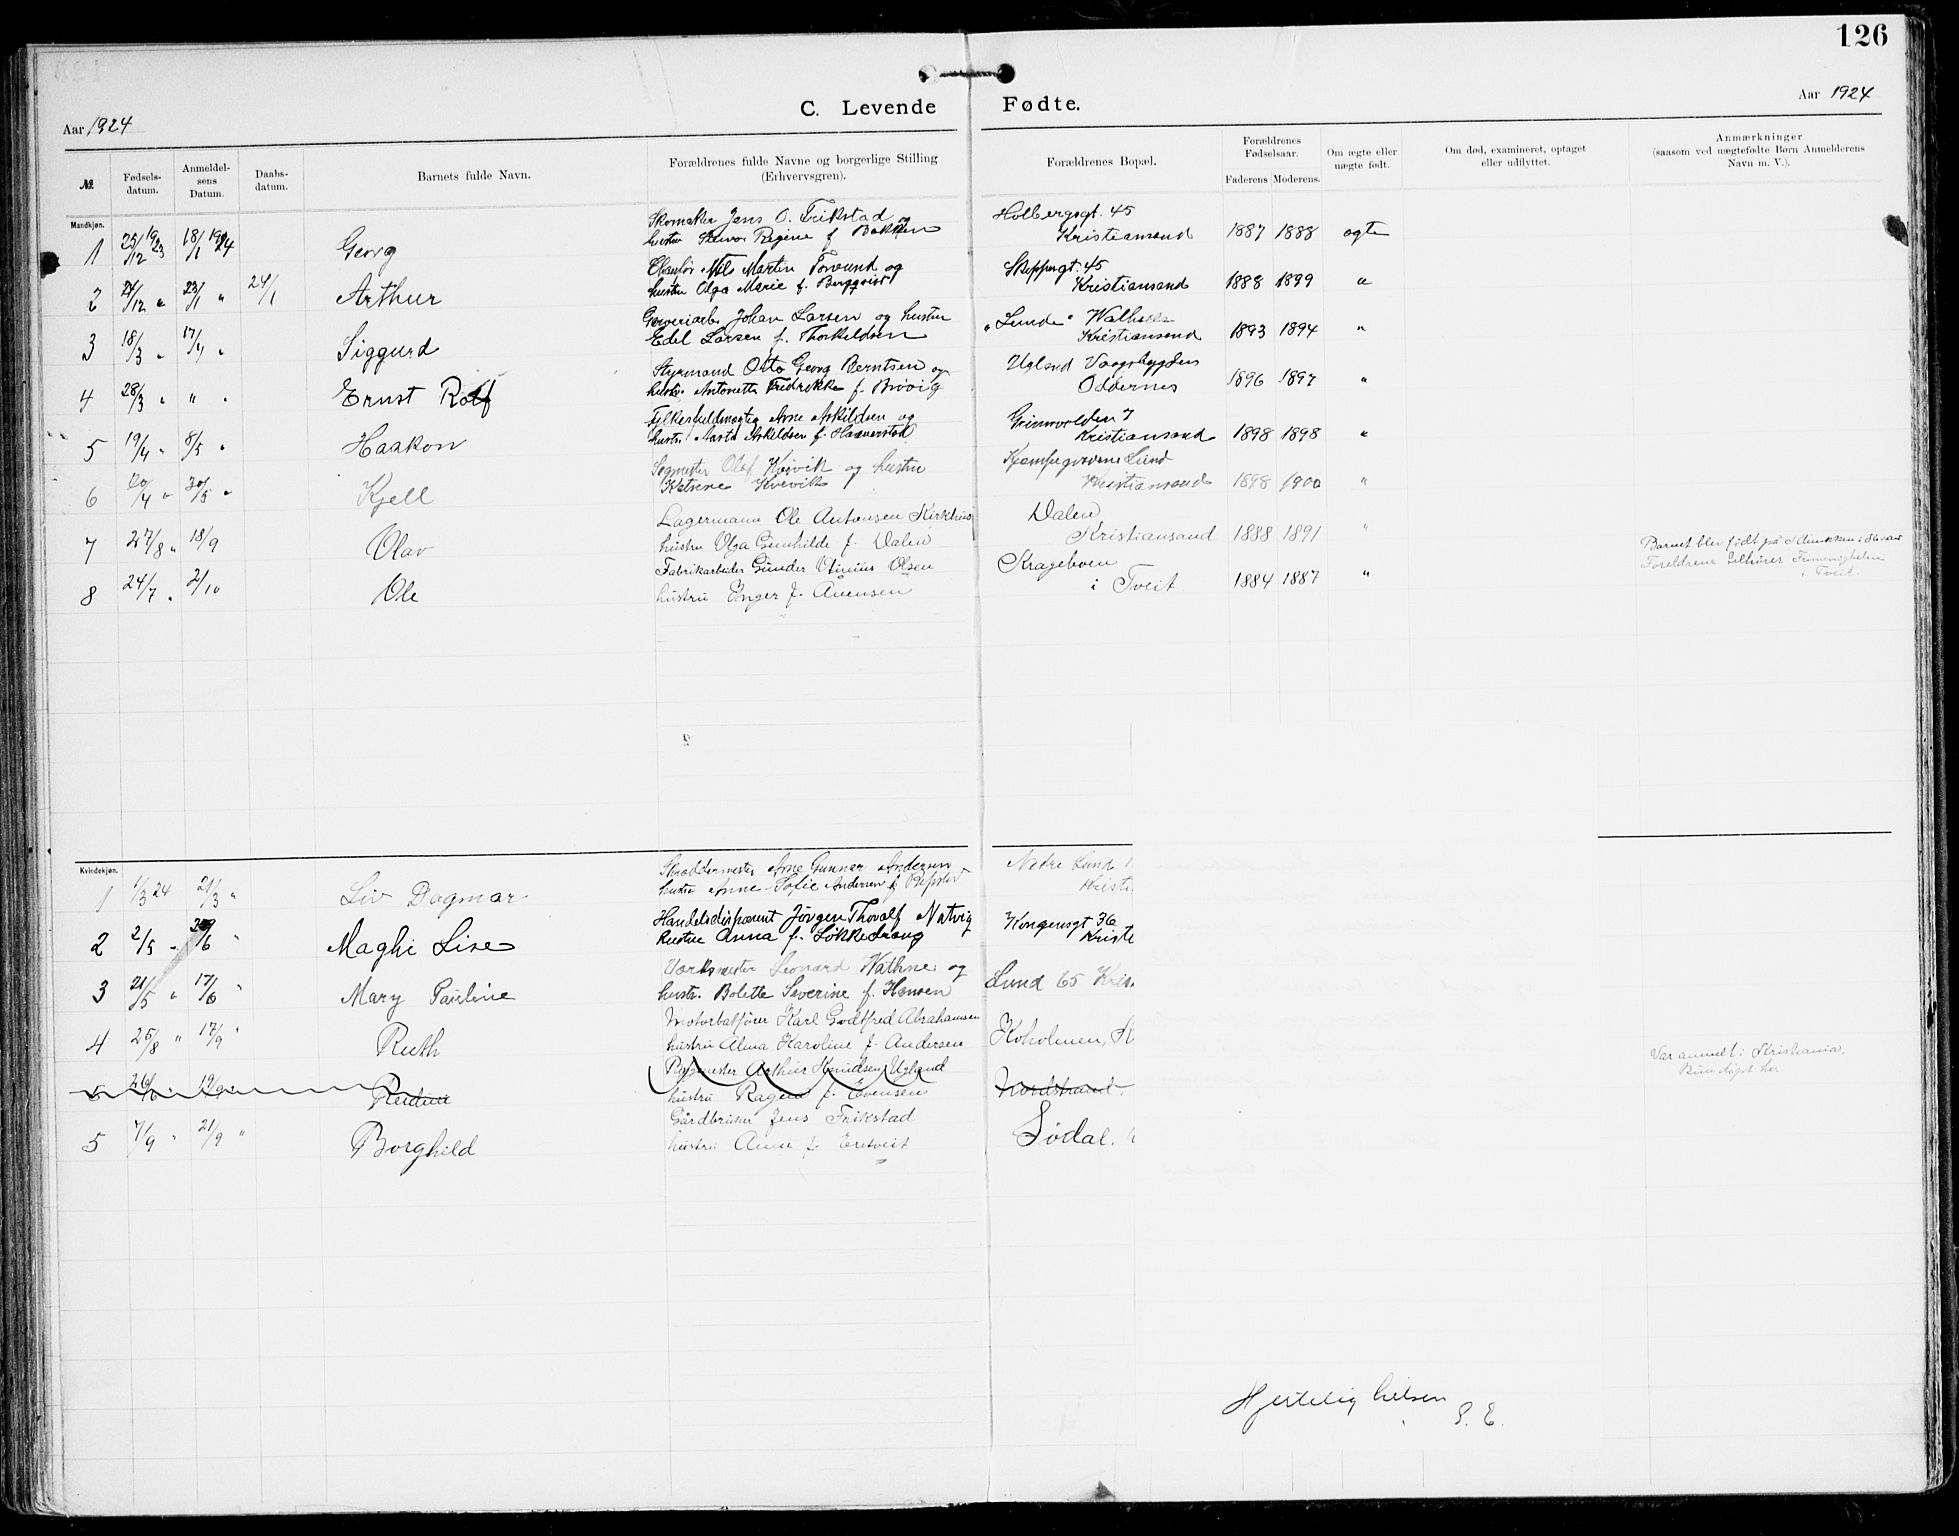 126
C. Levende Fødte.
Aar 1924
Aar 1924
№
Fødsels-datum.
Anmeldel-sens Datum.
Daabs-datum.
Barnets fulde Navn.
Forældrenes fulde Navne og borgerlige Stilling (Erhvervsgren).
Forældrenes Bopæl.
Forældrenes Fødselsaar.
Faderens Moderens.
Om ægte eller uægte født.
Om død, examineret, optaget eller udflyttet.
Anmærkninger
(saasom ved uægtefødte Børn Anmelderens Navn m. V.).
Mandkjøn.
Skomaker Jens O. Frikstad og Holbergsgt. 45
1 25/12 1923 18/1 1924 Georg hustru Regine f. Bakken Kristiansand 1887 1888 ægte
Chaufør Nils Martin Torsund og Skippergt. 45
2 24/12 " 23/1 " 24/1 Arthur hustru Olga Marie f. Bergqvist Kristiansand 1888 1899 "
Garveriarb. Johan Larsen og hustru "Lunde"
3 18/3 " 17/4 " Siggurd Edel Larsen f. Thorkeldsen Kristiansand 1893 1894 "
Styrmand Otto Georg Berntsen og Ugland Vaagsbygden
4 28/3 " " " Ernst Rolf hustru Antonette Fredrikke f. Brøvig Oddernes 1896 1897 "
Fylkesfuldmægtig Arne Askildsen og Grimvolden 7
5 19/4 " 8/5 " Haakon hustr. Marta Askildsen f. Haaverstad Kristiansand 1898 1898 "
Sagmester Olaf Kvivik og hustru Lund
6 20/4 " 30/5 " Kjell Kvivik Kristiansand 1898 1900 "
Lagermann Ole Antonsen Kirkhus Dalen
7 27/8 " 18/9 Olav hustru Olga Gunhilde f. Dalen Kristiansand 1888 1891 "
Barnet blev født på
Fabrikarbeider Gunder Olsen Krageboen
Foreldrene tilhører
8 24/7 " 2/10 Ole hustru Inger f. Avensen i Tveit 1884 1887 "
i Tveit.
Kvindekjøn.
Skræddermester Arne Gunnar Andersen Nedre Lund
1 1/3 24 21/3 " Liv Dagmar hustru Anne Sofie Andersen f. Kristi
Handelsdisponent Jørgen Thoralf Natvig Kongensgt 36
2 2/5 " /6 " Maghi Lise hustru Anna f. Løkkedrang Kriste
Verksmester Leonard Wathne og Lund 65 Kris
3 21/5 " 17/6 " Mary Pauline hustr. Bolette Severine f. Hansen
Motorbåtfører Karl Godtfred Abrahamsen Koholmen, K
4 25/8 " 17/9 " Ruth hustru Alma Karoline f. Andersen
Var anmelt i Kristiania,
Arthur Knudsen Ugland Nordstrand
Kun døpt her
Reidun hustru Ragna f. Evensen
Gårdbruker Jens Frikstad Sødal.
5 7/9 " 21/9 " Borghild hustru Anne f. Eretveit
Hjertelig hilsen
S. E.